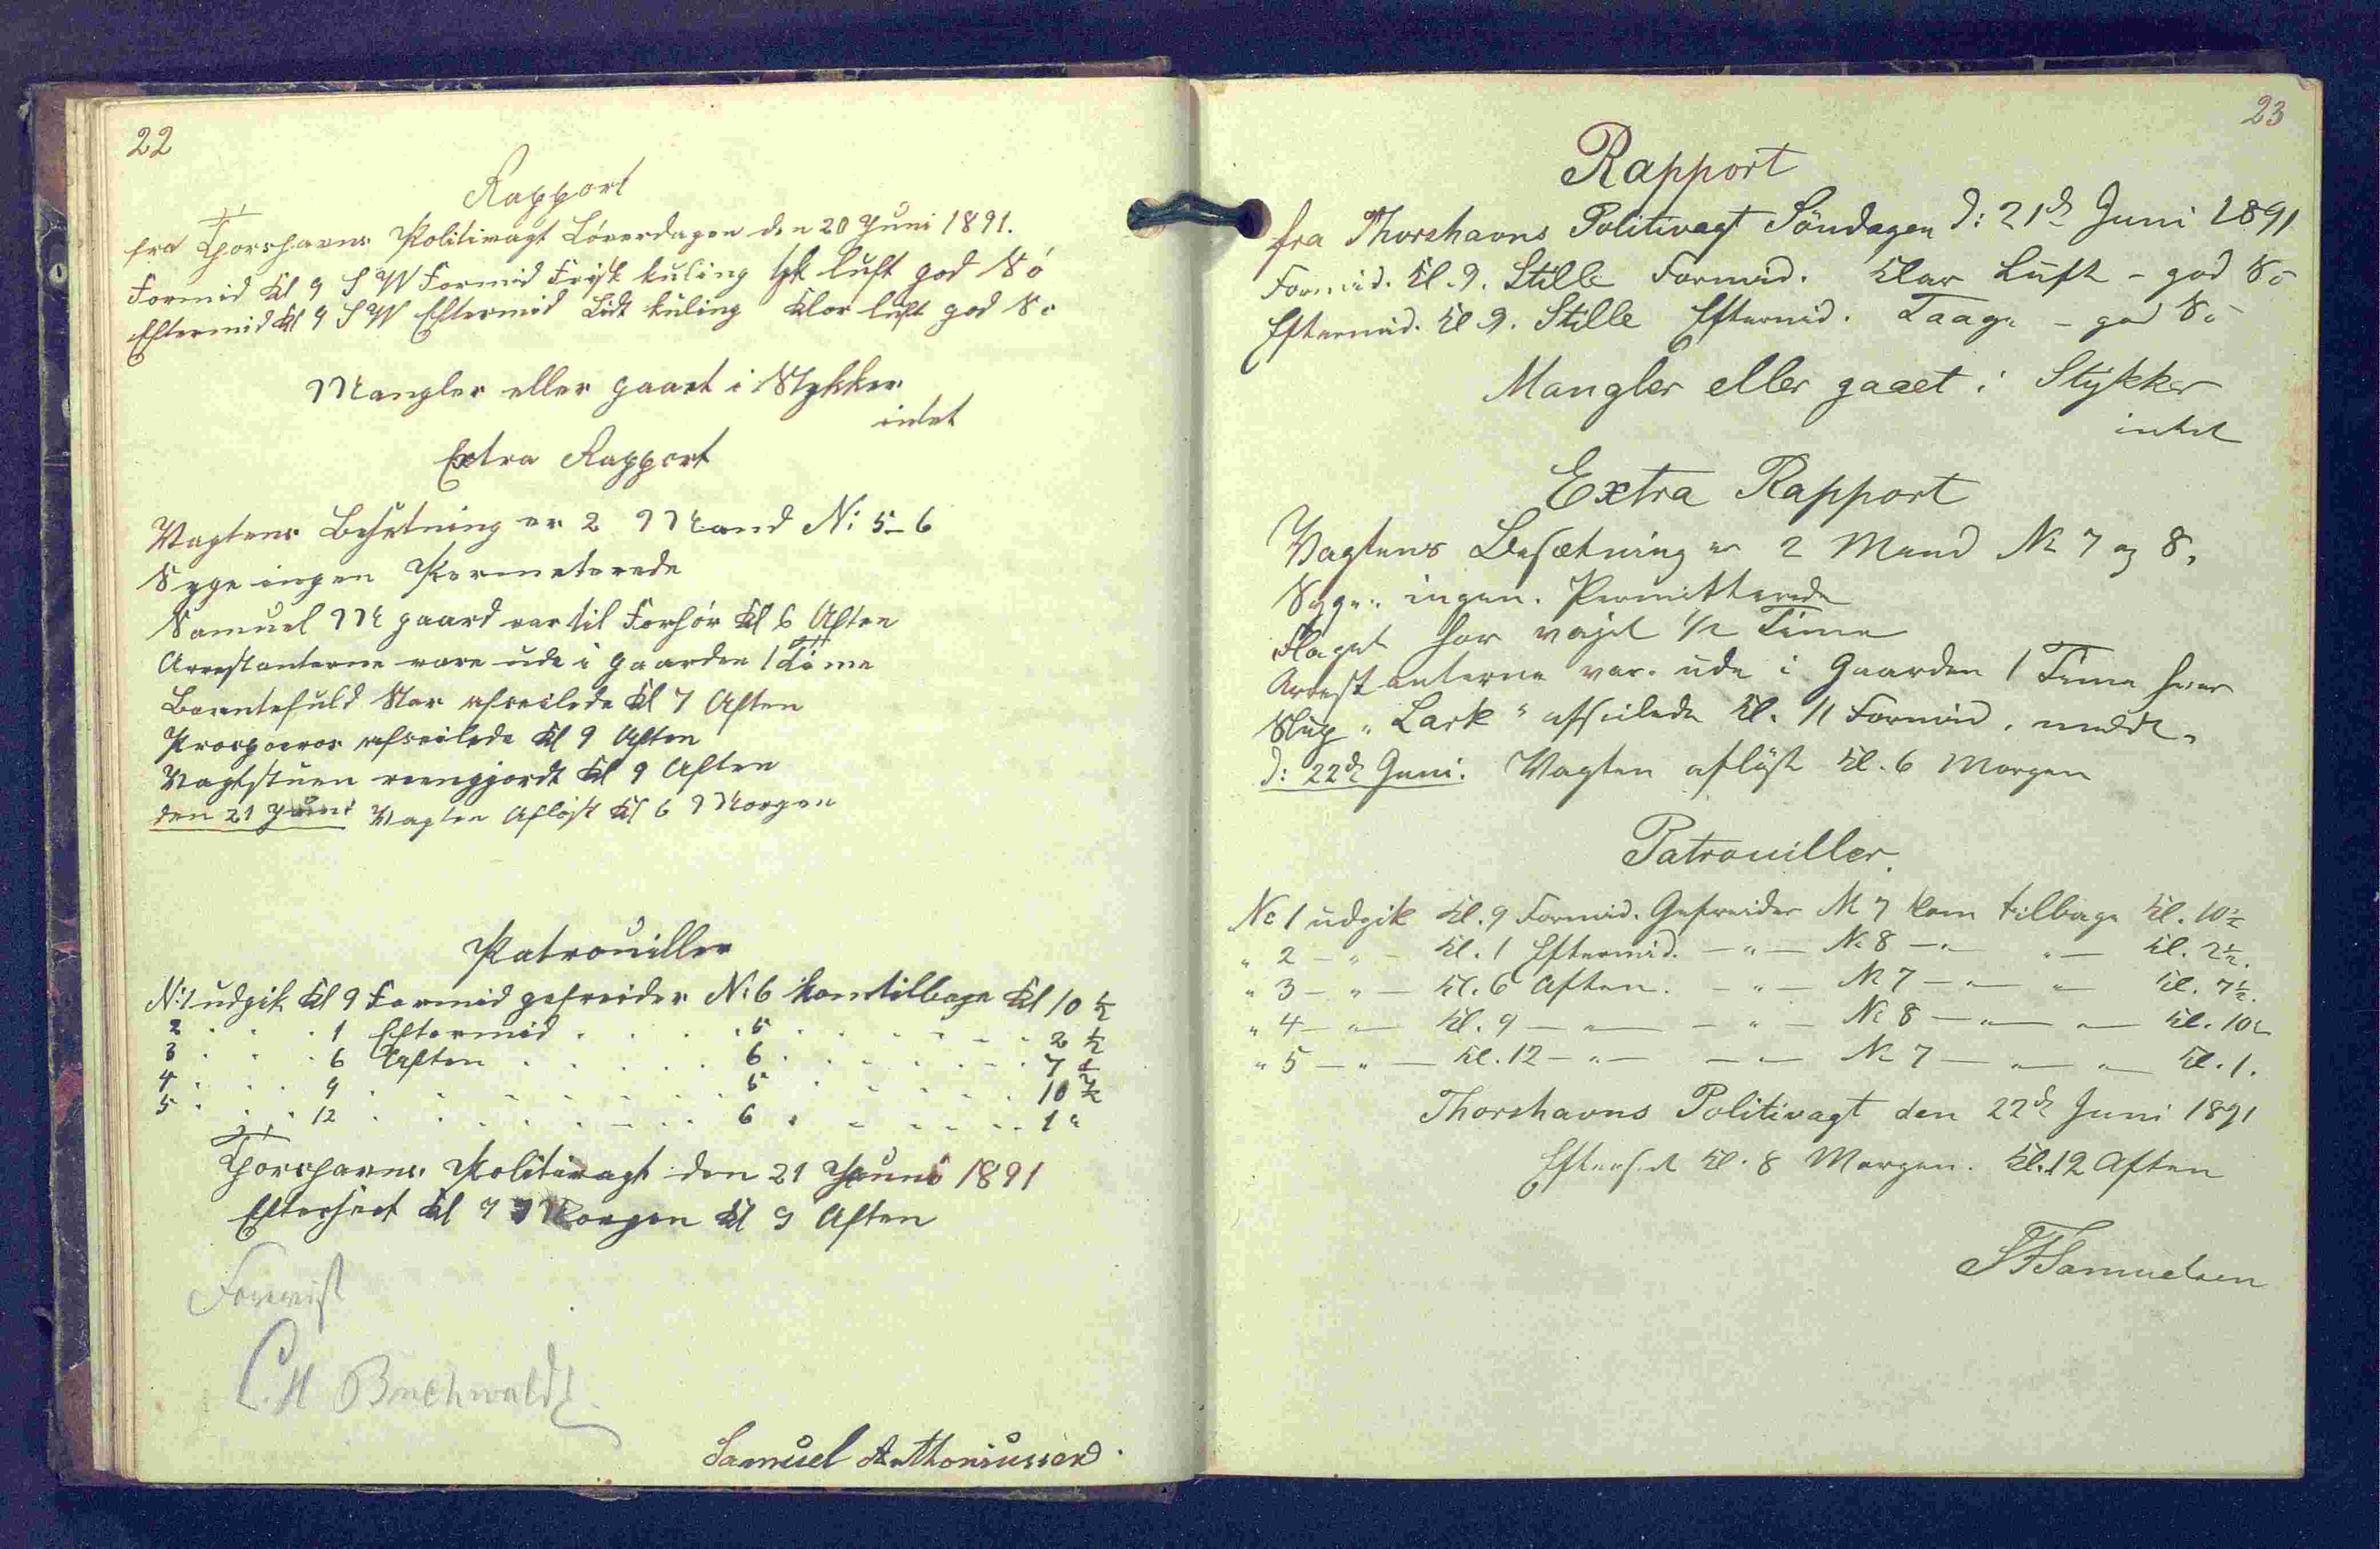 22
Rapport
fra Thorshavns Politivagt Löverdagen den 20 Juni 1891.
Formid Kl 9 S W Formid Frisk kuling tyk luft god Sö
Eftermid Kl 9 S W Eftermid Lidt kuling Klar luft god Sö
Mangler eller gaaet i Stykker
intet
Extra Rapport
Vagtens Besetning er 2 Mand N: 5-6
Syge ingen Permeterede
Samuel M gaard var til Forhör Kl 6 Aften
Arrestanterne vare ude i gaarden 1 Time
Star afseilede Kl 7 Aften
Prosperos afseilede Kl 9 Aften
Vagtstuen reengjordt Kl 9 Aften
den 21 Juni Vagten Aflöst Kl 6 Morgen
Patrouiller
N: 1 udgik Kl 9 Formid gefreider N: 6 kom tilbage Kl 10 ½
2 . . . 1 Eftermid . . . . 5 . . . . . . 2 ½
3 . . . 6 Aften . . . . . 6 . . . . . . 7 ½
4 . . . 9 . . . . . . . 5 . . . . . . 10 ½
5 . . . 12 . . . . . . . 6 . . . . . . 1 "
Thorshavns Politivagt den 21 Juni 1891
Efterseet Kl 7 Morgen Kl 9 Aften
Forevist
C. H Buchwaldt
Samuel Anthoniussen
23
Rapport
fra Thorshavns Politivagt Söndagen d: 21de Juni 1891
Formid. Kl. 9. Stille Formid. Klar Luft - god Sö
Eftermid. Kl. 9. Stille Eftermid. Taage - god Sö
Mangler eller gaaet i Stykker
intet
Extra Rapport
Vagtens Besætning er 2 Mand No 7 og 8.
Syge: ingen. Permitterede
Flaget har vajet 1/2 Time
Arrestanterne var ude i Gaarden 1 Time hver
Slup "Lark" afseilede Kl. 11 Formid.
d: 22de Juni. Vagten aflöst Kl. 6 Morgen
Patrouiller
No 1 udgik Kl. 9 Formid. Gefreider No 7 kom tilbage Kl. 10½
" 2 - " - Kl. 1 Eftermid. - " - No 8 - " - " - Kl. 2½.
" 3 - " - Kl. 6 Aften. - " - No 7 - " - " - Kl. 7½.
" 4 - " - Kl. 9 - " - - " - No 8 - " - " - Kl. 10½
" 5 - " - Kl. 12 - " - - " - No 7 - " - " - Kl. 1.
Thorshavns Politivagt den 22de Juni 1891
Efterset Kl. 8 Morgen. Kl. 12 Aften
Samuelsen